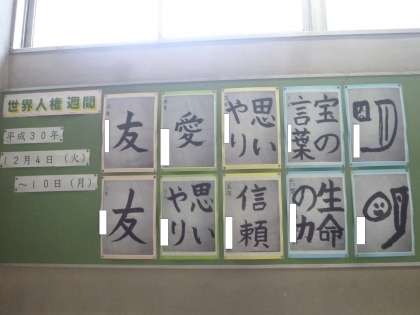 世界人権週間
平成30年
12月4日(火)
~10日(月)
友
愛
思い
やり
宝の
言葉
友
思い
やり
信頼
生命
の力